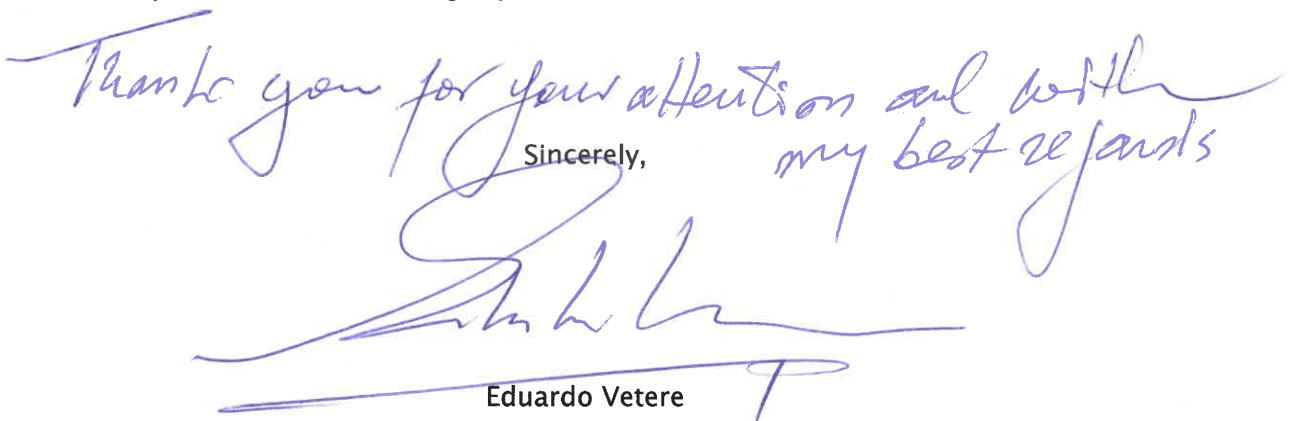 Thank you for your attention and with
my best regards
Sincerely,
Eduardo Vetere